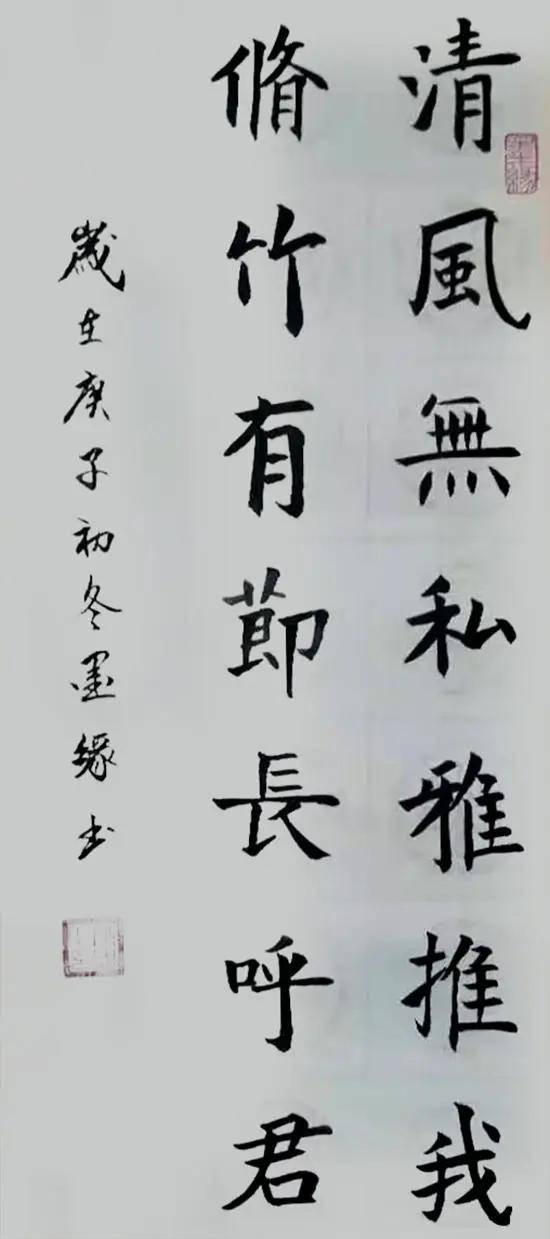 清風無私雅推我
脩竹有莭長呼君
歲在庚子初冬墨緣书